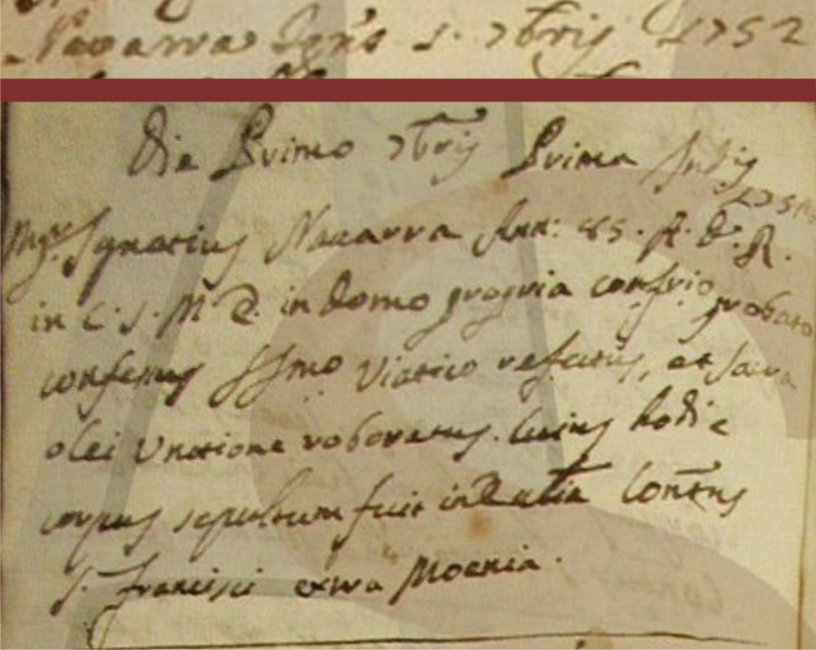 Navarra Ign's 1. 7bris 1752
Die Primo 7bris Prima Indis
1752
Mgr Ignatius Navarra Ann: 85. A. D. R.
in C. S. M E. in domo propria confrio probato
confessus SSmo Viatico refectus, et sacra
olei Unctione roboratus. Cuius hodie
corpus sepultum fuit in Conv̄tus
S. Francisci extra Moenia.